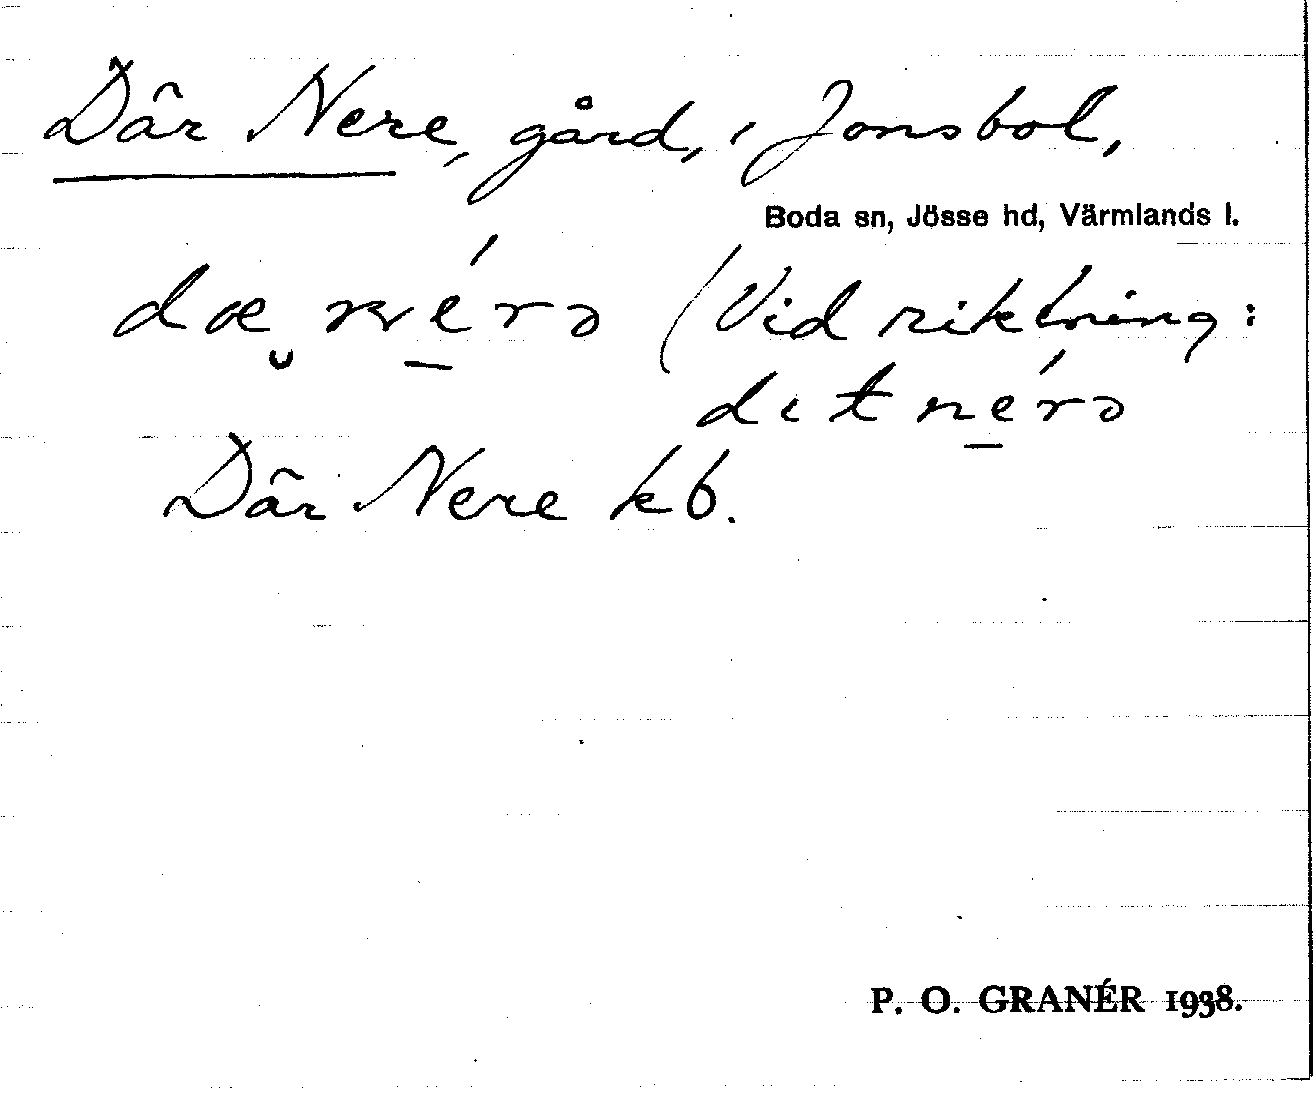 Där Nere, gård, i Jonsbol,
Boda sn, Jösse hd, Värmlands l.
dæ̮ né̠rə (Vid riktning:
dıt né̠rə
Där Nere kb.
P. O. GRANÉR 1938.